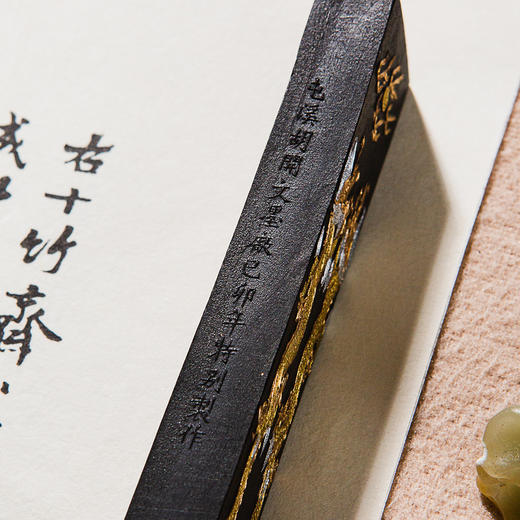 屯溪胡開文墨廠己卯年特別製作
右十竹齋